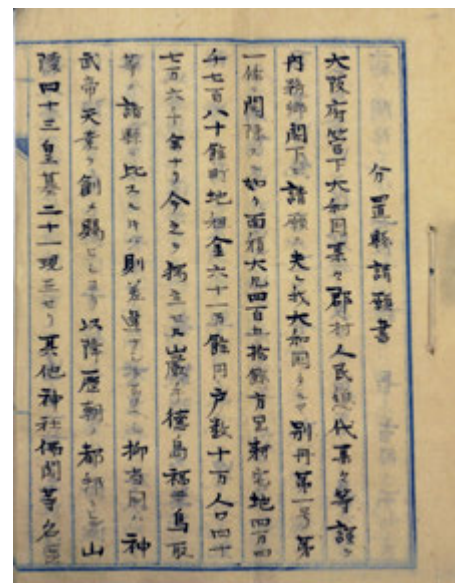 分置縣請願書
大阪府管下大和国某々郡村人民惣代某々等謹テ
内務卿閣下ニ請願ス夫レ我大和国タルヤ別冊第一号第
一條ニ開陳スル如ク面積大凡四百五拾餘方里耕宅地四万四
千七百八十餘町地租金六十一万餘円戸数十万人口四十
七万六千余ナリ今之ヲ独立セル巌手徳島福井鳥取
等ノ諸縣ニ比スルトキハ則差違アル抑当国ハ神
武帝天業ヲ創メ賜ヒシヨリ以降歴朝ノ都郷ニシテ山
陵四十三皇墓二十一現三セリ其他神社仏閣等名区